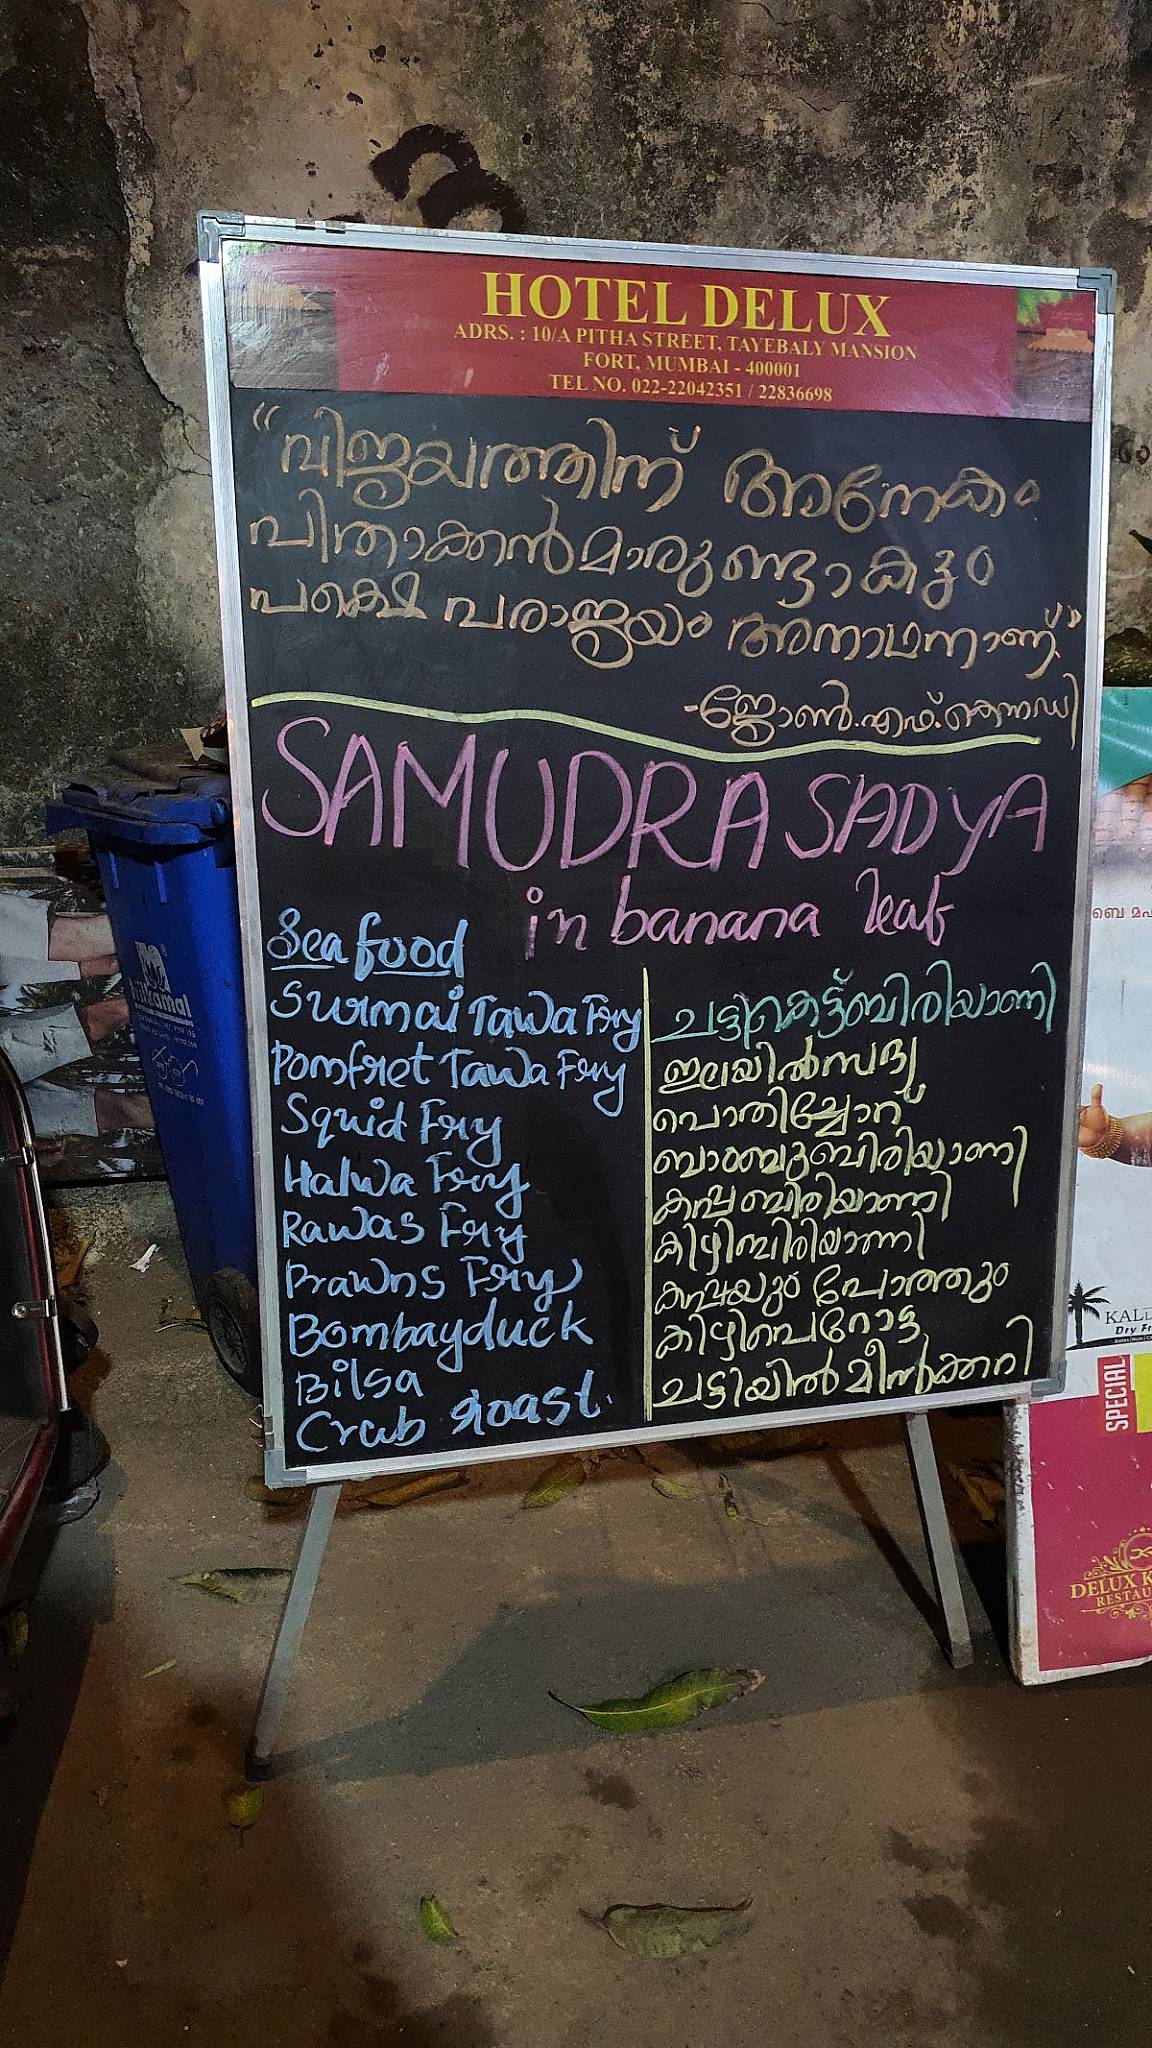 HOTEL DELUX
ADRS. : 10/A PITHA STREET, TAYEBALY MANSION
FORT, MUMBAI - 400001
TEL NO. 022-22042351 / 22836698
"വിജയത്തിന് അനേകം
പിതാക്കൻമാരുണ്ടാകും
പക്ഷെ പരാജയം അനാഥനാണ്"
-ജോൺ.എഫ്.കെന്നഡി
SAMUDRA SADYA
in banana leaf
Sea food
Surmai Tawa Fry
Pomfret Tawa Fry
Squid Fry
Halwa Fry
Rawas Fry
Prawns Fry
Bombayduck
Bilsa
Crab roast.
ചട്ടികെട്ട്ബിരിയാണി
ഇലയിൽസദ്യ
പൊതിച്ചോറ്
ബാമ്പുബിരിയാണി
കപ്പബിരിയാണി
കിഴിബിരിയാണി
കപ്പയും പോത്തും
കിഴിപെറോട്ട
ചട്ടിയിൽ മീൻക്കറി
ബെ മഹ
KAL
Dry F
SPECIAL
DELUX K
RESTAU
nilkamal